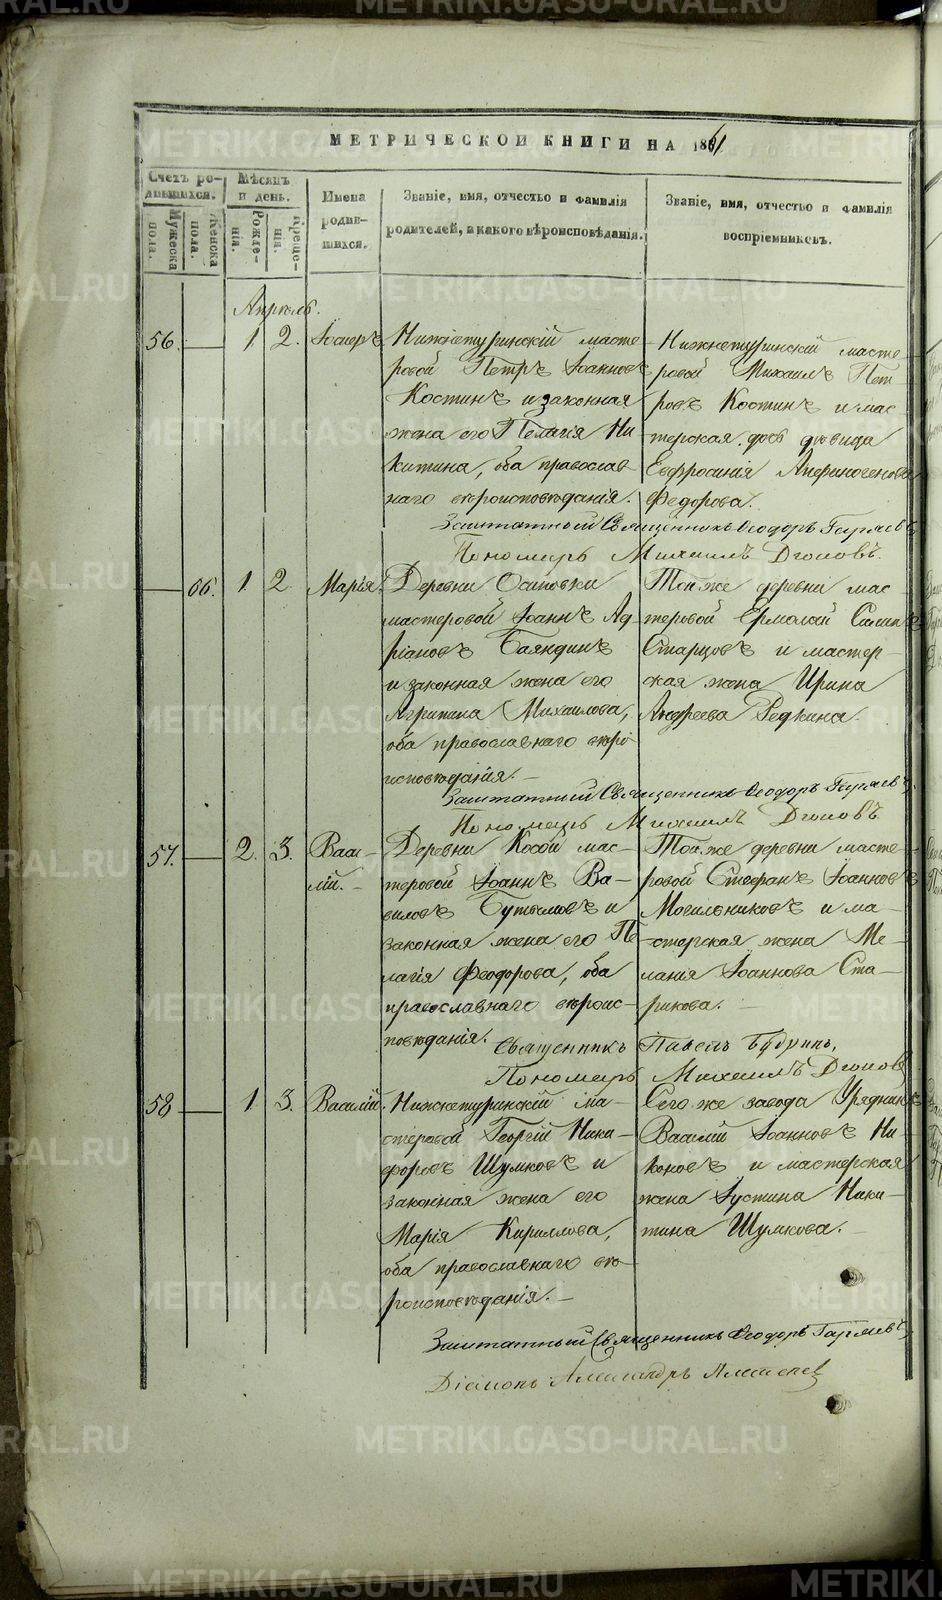 МЕТРИЧЕСКОЙ КНИГИ НА 1861
Счетъ родившихся.
Мужеска пола.
Женска пола.
Мѣсяцъ и день.
Рожденія.
Крещенія.
Имена родившихся.
Званіе, имя, отчество и фамилія родителей, и какого вѣроисповѣданія.
Званіе, имя, отчество и фамилія воспріемниковъ.
Апрѣль.
56. — 1. 2.
Нижнетуринскій масте-
ровой Петръ Іоанновъ
Костинъ и законная
жена его Пелагія Ни-
китина, оба православ-
наго вѣроисповѣданія.
Нижнетуринскій масте-
ровой Михаилъ Пет-
ровъ Костинъ и мас-
терская дочь дѣвица
Евфросинія
Федорова.
Заштатный Священникъ Ѳеодоръ
Пономарь Михаилъ
— 66. 1. 2. Марія.
Деревни Осиновки
мастеровой Іоаннъ Ад-
ріановъ Баяндинъ
и законная жена его
Агрипина Михаилова,
оба православнаго вѣро-
исповѣданія.
Той же деревни мас-
теровой Ермолай
Старцовъ и мастер-
ская жена Ирина
Андреева Редкина.
Заштатный Священникъ Ѳеодоръ
Пономарь Михаилъ
57. — 2. 3. Васи-
лій.
Деревни Косой мас-
теровой Іоаннъ Ва-
виловъ и
законная жена его Пе-
лагія Феодорова, оба
православнаго вѣроис-
повѣданія.
Той же деревни масте-
ровой Стефанъ Іоанновъ
Могильниковъ и ма-
стерская жена Ме-
ланія Іоаннова Ста-
рикова.
Священникъ Павелъ
Пономарь Михаилъ
58 — 1. 3. Василій.
Нижнетуринскій ма-
стеровой Георгій Ники-
форовъ Шумковъ и
законная жена его
Марія Кириллова,
оба православнаго вѣ-
роисповѣданія.
Сего же завода Урядникъ
Василій Іоанновъ Ни-
коновъ и мастерская
жена Іустина Ники-
тина Шумкова.
Заштатный Священникъ Ѳеодоръ
Діаконъ Александръ
METRIKI.GASO-URAL.RU